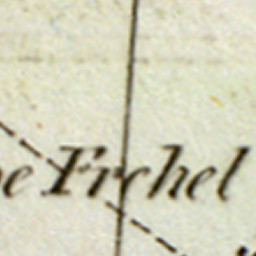 e Frehel